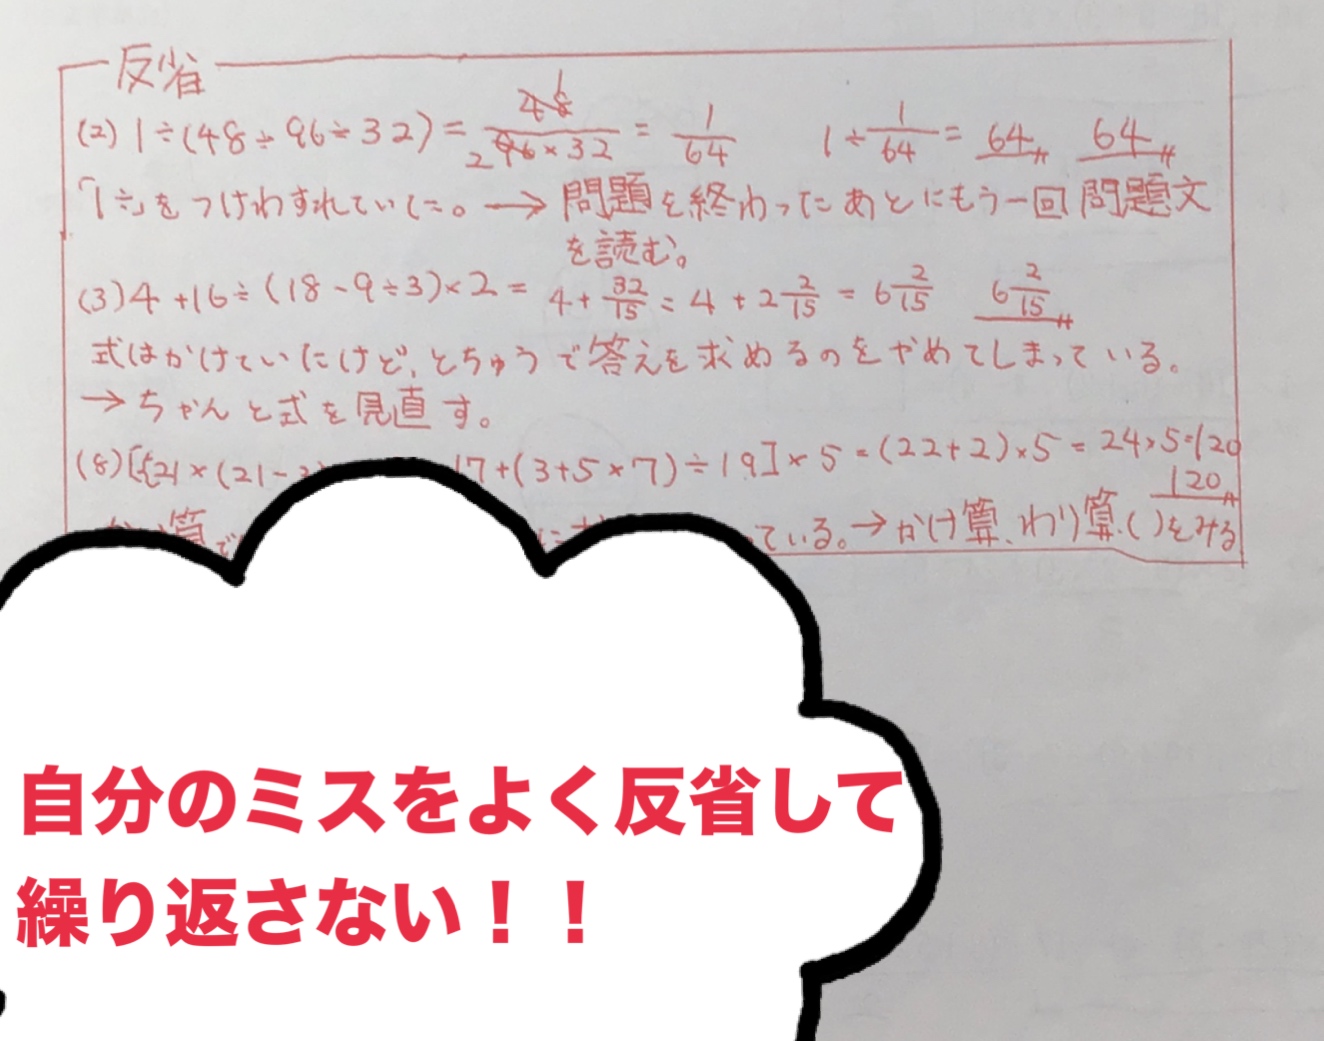 反省
(2) 1÷(48÷96÷32) = 48/96×32 = 1/64 1÷1/64 = 64 64
「1÷」をつけわすれていた。→ 問題を終わったあとにもう一回問題文
を読む。
(3) 4+16÷(18-9÷3)×2 = 4+32/15 = 4+2 2/15 = 6 2/15 6 2/15
式はかけていたけど、とちゅうで答えを求めるのをやめてしまっている。
→ちゃんと式を見直す。
(8) [{21×(21- 17+(3+5×7)÷19]×5=(22+2)×5=24×5=120
120
算 っている。→かけ算、わり算、( )をみる
自分のミスをよく反省して
繰り返さない！！